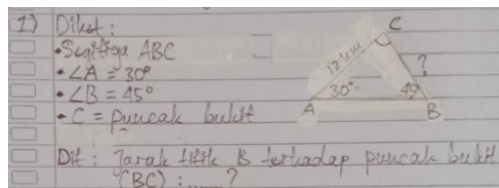 1) Diket :
• Segitiga ABC
• ∠A = 30°
• ∠B = 45°
• C = puncak bukit
C
12 km
?
30°
45°
A
B
Dit : Jarak titik B terhadap puncak bukit
(BC) : ......?